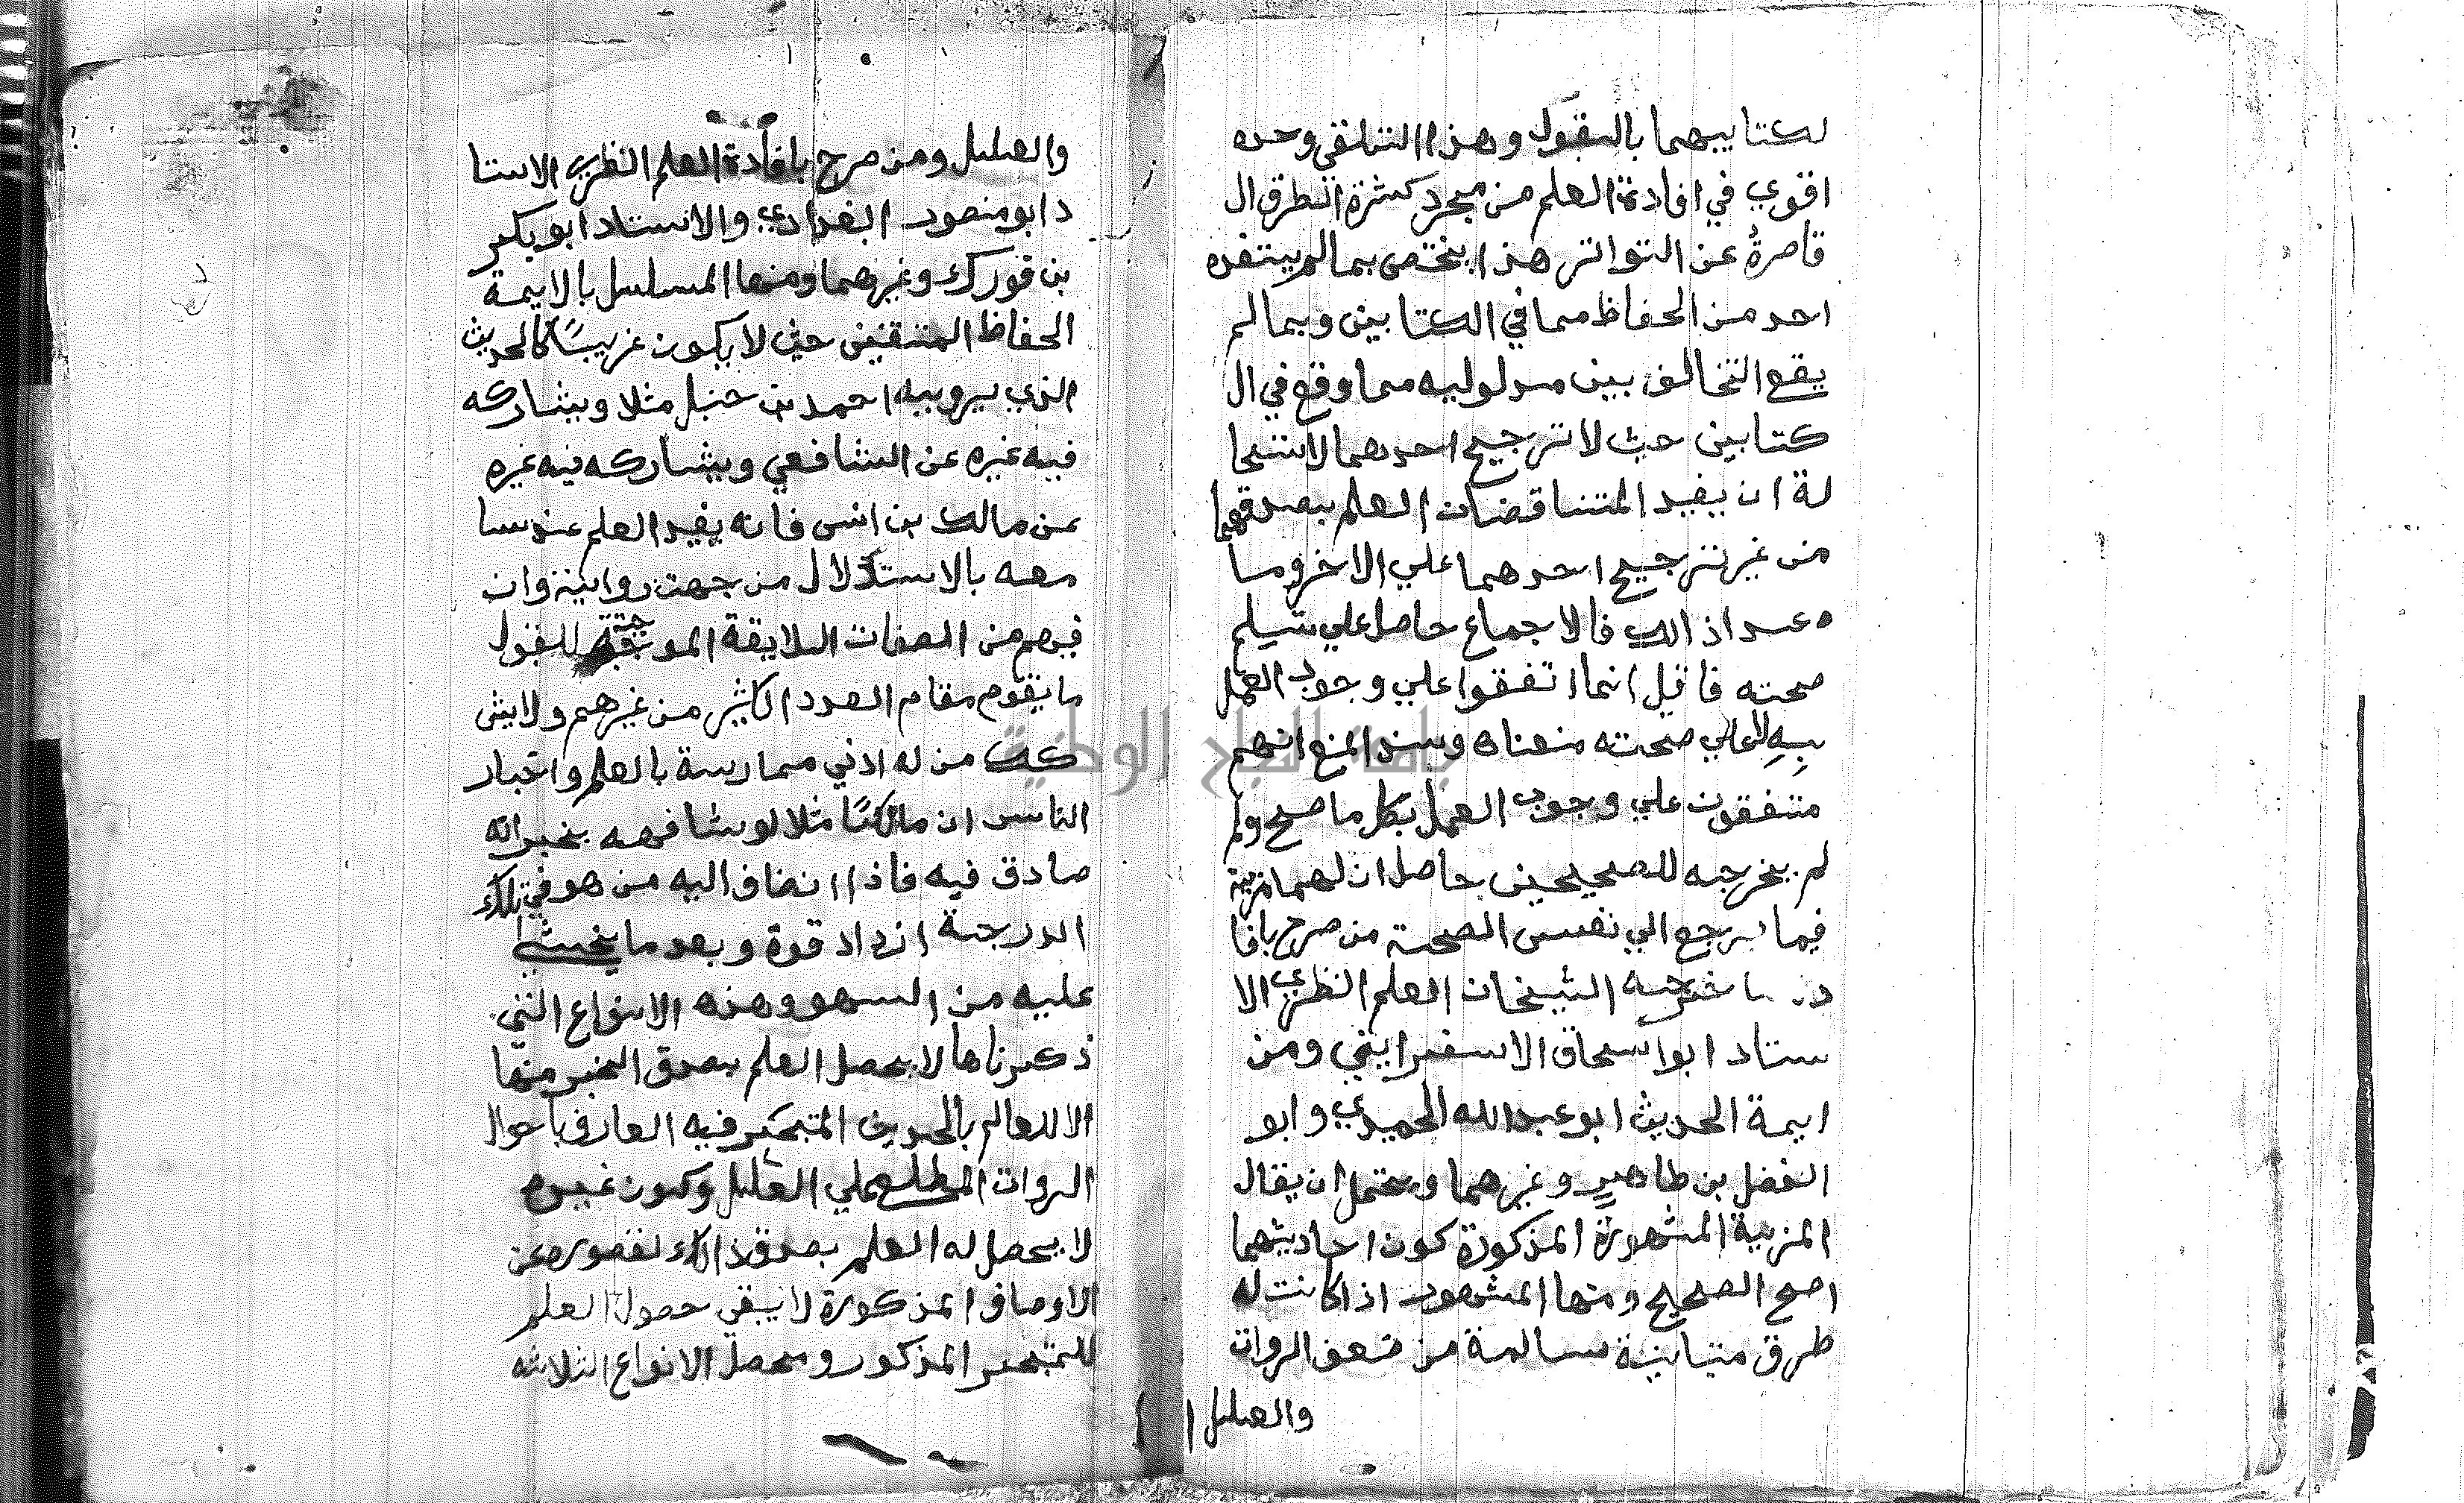 لكتابيهما بالقبول وهذا التلقي وحده
اقوي في افادة العلم من مجرد كثرة الطرق ال
قاصرة عن التواتر هذا يختص بما لم ينتقده
احد من الحفاظ مما في الكتابين وبما لم
يقع التخالف بين مدلوليه مما وقع في ال
كتابين حيث لا ترجيح احدهما لاستحا
لة ان يفيد المتناقضان العلم بصدقهما
من غير ترجيح احدهما علي الاخر وما
عدا ذالك فالاجماع حاصل علي تسليم
صحته فا قيل انما اتفقوا علي وجوب العمل
به لا علي صحته منعناه وسند المنع انهم
متفقون علي وجوب العمل بكل ما صح ولم
لم يخرجه للصحيحين حاصل ان لهما مزية
فيما يرجع الي نفس الصحة من صرح بافا
دة ما خرجه الشيخان العلم النظري الا
ستاد ابو اسحاق الاسفرايني ومن
ايمة الحديث ابو عبد الله الحميدي وابو
الفضل بن طاهر وغيرهما ويحتمل ان يقال
المزية المشهورة المذكورة كون احاديثهما
اصح الصحيح ومنها المشهور اذا كانت له
طرق متباينة سالمة من ضعف الروات
والعلل
والعلل ومن صرح بافادة العلم النظري الاستا
د ابو منصور البغدادي والاستاد ابو بكر
بن فورك وغيرهما ومنها المسلسل بالايمة
الحفاظ المتقنين حيث لا يكون غريبًا كالحديث
الذي يرويه احمد بن حنبل مثلا ويشاركه
فيه غيره عن الشافعي ويشاركه فيه غيره
عن مالك بن انس فانه يفيد العلم عند سا
معه بالاستدلال من جهة رواته وان
فيهم من الصفات اللايقة الموجبة للقبول
ما يقوم مقام العدد الكثير من غيرهم ولا يتش
كك من له ادني ممارسة بالعلم واخبار
الناس ان مالكًا مثلا لو شافهه بخبر انه
صادق فيه فاذا انضاف اليه من هو في تلك
الدرجة ازداد قوة وبعد ما يخشي
عليه من السهو وهذه الانواع التي
ذكرناها لا يحصل العلم بصدق الخبر منها
الا للعالم بالحديث المتبحر فيه العارف باحوال
الروات المطلع علي العلل وكون غيره
لا يحصل له العلم بصدق ذالك لقصوره عن
الاوصاف المذكورة لا ينفي حصول العلم
للمتبحر المذكور ومحصل الانواع الثلاثه
جامعة النجاح الوطنية